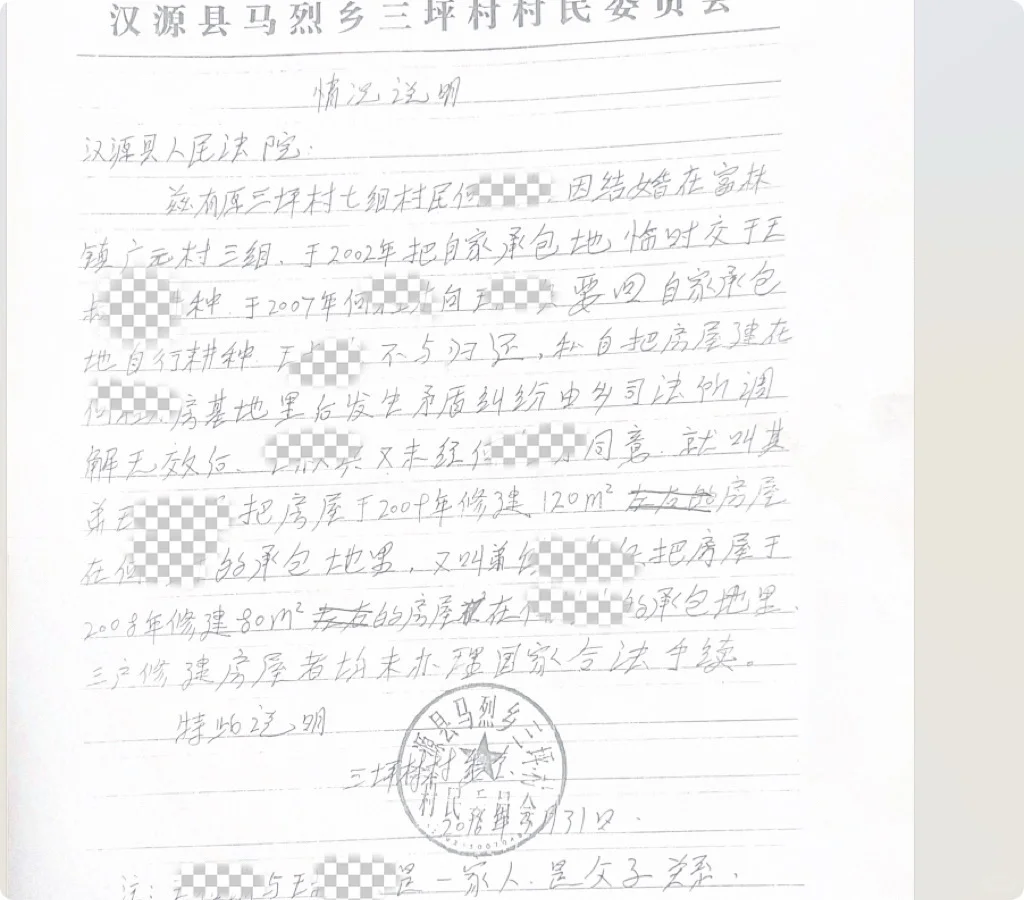 汉源县马烈乡三坪村村民委员会
情况说明
汉源县人民法院:
兹有原三坪村七组村民何 因结婚在富林
镇广元村三组、于2002年把自家承包地临时交于王
种.于2007年何 向王 要回自家承包
地自行耕种.王 不与归还,私自把房屋建在
何 房基地里后发生矛盾纠纷由乡司法所调
解无效后、 又未经何 同意.就叫其
弟王 把房屋于2009年修建120m² 房屋
在何 的承包地里,又叫弟 把房屋于
2008年修建80m² 的房屋 在 的承包地里.
三户修建房屋者均未办理国家合法手续。
特此说明
三坪村村
月31日.
注: 与王 是一家人.是父子关系.